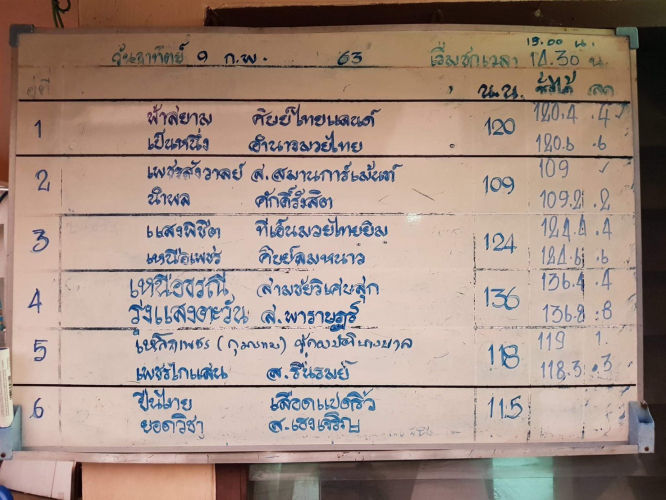 15.00 น.
วันอาทิตย์ 9 ก.พ. 63 เริ่มชกเวลา 14.30 น.
คู่ที่ น.น. ชั่งได้ ลด
1 ฟ้าสยาม ศิษย์ไทยแลนด์ 120 120.4 .4
เป็นหนึ่ง อำนาจมวยไทย 120.6 .6
2 เพชรสังวาลย์ ส.สมานการ์เม้นท์ 109 109 ✓
นำพล ศักดิ์รังสิต 109.2 .2
3 แสงพิชิต ทีเอ็นมวยไทยยิม 124 124.4 .4
เหนือเพชร ศิษย์ลมหนาว 124.6 .6
4 เหนือธรณี สามชัยวิเศษสุก 136 136.4 .4
รุ่งแสงตะวัน ส.พารามฎร์ 136.8 .8
5 118 119 1.
เพชรไกแสน ส.ชื่นรมย์ 118.3 .3
6 ปืนไทย เลือดแปดริ้ว 115
ยอดวิชา ส.เฮงเจริญ